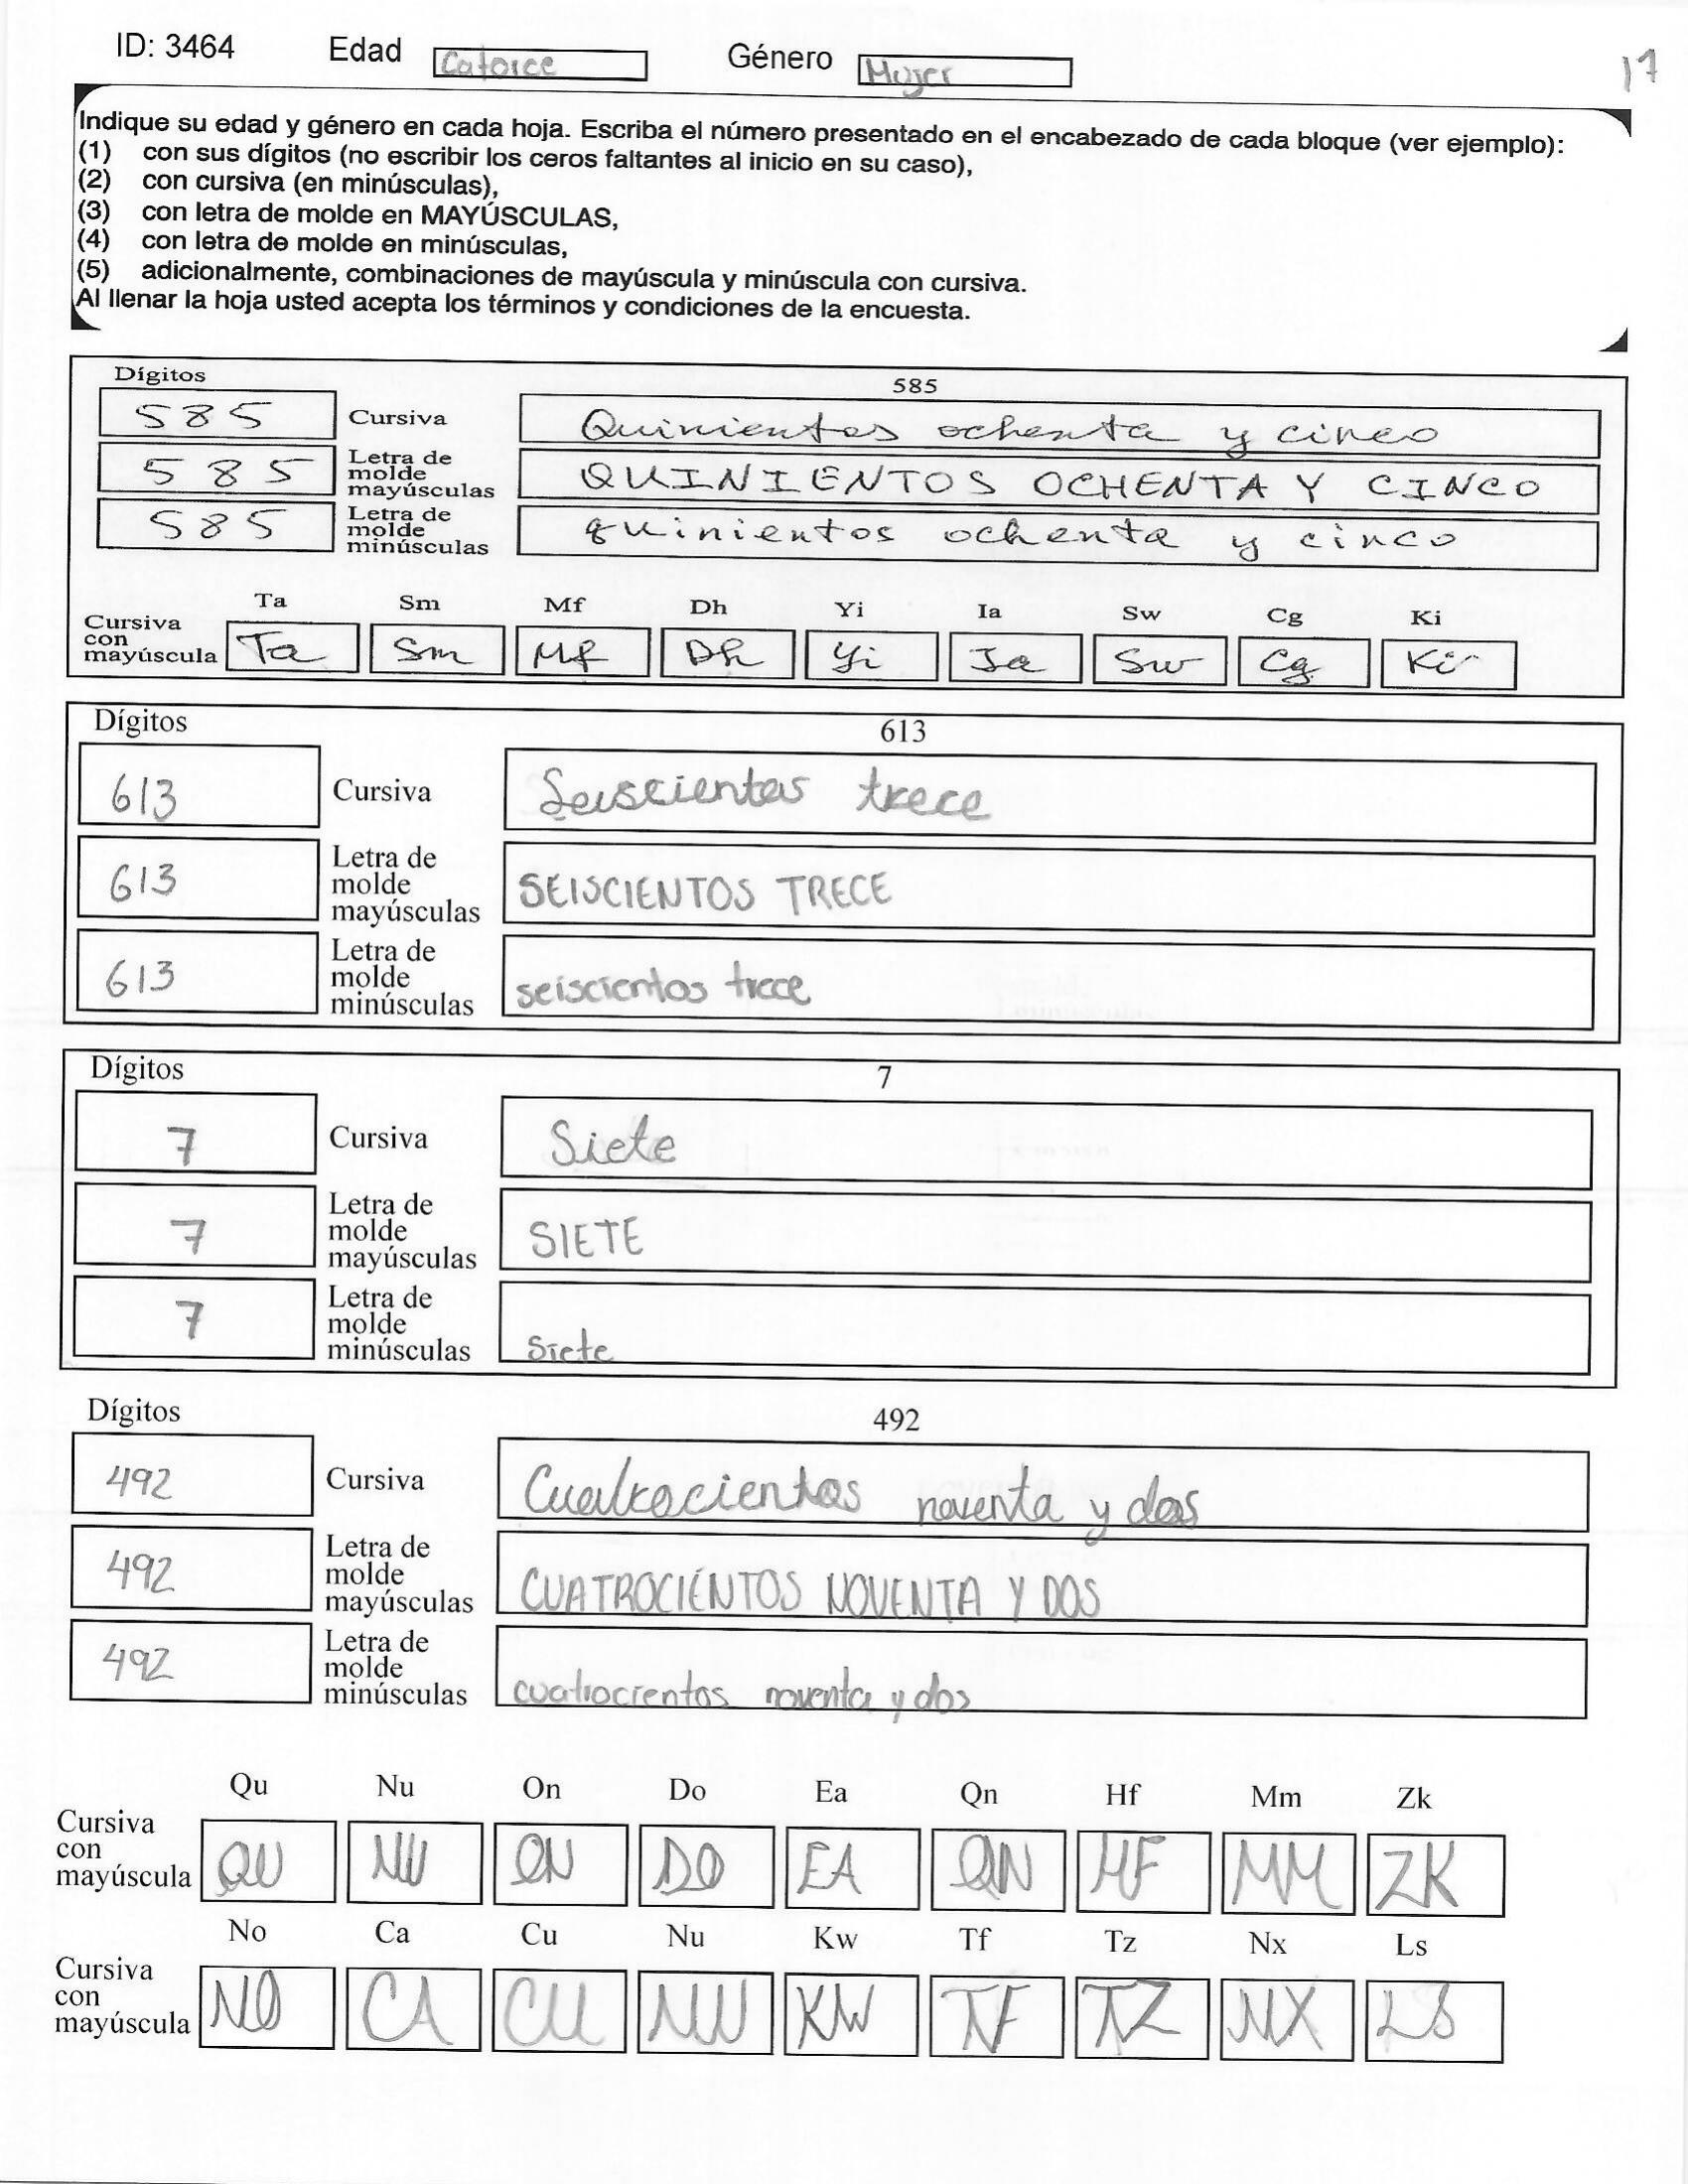 ID: 3464 Edad Catorce Género Mujer 17
Indique su edad y género en cada hoja. Escriba el número presentado en el encabezado de cada bloque (ver ejemplo):
(1) con sus dígitos (no escribir los ceros faltantes al inicio en su caso),
(2) con cursiva (en minúsculas),
(3) con letra de molde en MAYÚSCULAS,
(4) con letra de molde en minúsculas,
(5) adicionalmente, combinaciones de mayúscula y minúscula con cursiva.
Al llenar la hoja usted acepta los términos y condiciones de la encuesta.
Dígitos 585
585 Cursiva Quinientos ochenta y cinco
585 Letra de molde mayúsculas QUINIENTOS OCHENTA Y CINCO
585 Letra de molde minúsculas quinientos ochenta y cinco
Ta Sm Mf Dh Yi Ia Sw Cg Ki
Cursiva con mayúscula Ta Sm Mf Dh Yi Ia Sw Cg Ki
Dígitos 613
613 Cursiva Seiscientos trece
613 Letra de molde mayúsculas SEISCIENTOS TRECE
613 Letra de molde minúsculas seiscientos trece
Dígitos 7
7 Cursiva Siete
7 Letra de molde mayúsculas SIETE
7 Letra de molde minúsculas siete
Dígitos 492
492 Cursiva Cuatrocientos noventa y dos
492 Letra de molde mayúsculas CUATROCIENTOS NOVENTA Y DOS
492 Letra de molde minúsculas cuatrocientos noventa y dos
Qu Nu On Do Ea Qn Hf Mm Zk
Cursiva con mayúscula QU NU ON DO EA QN HF MM ZK
No Ca Cu Nu Kw Tf Tz Nx Ls
Cursiva con mayúscula NO CA CU NU KW TF TZ NX LS